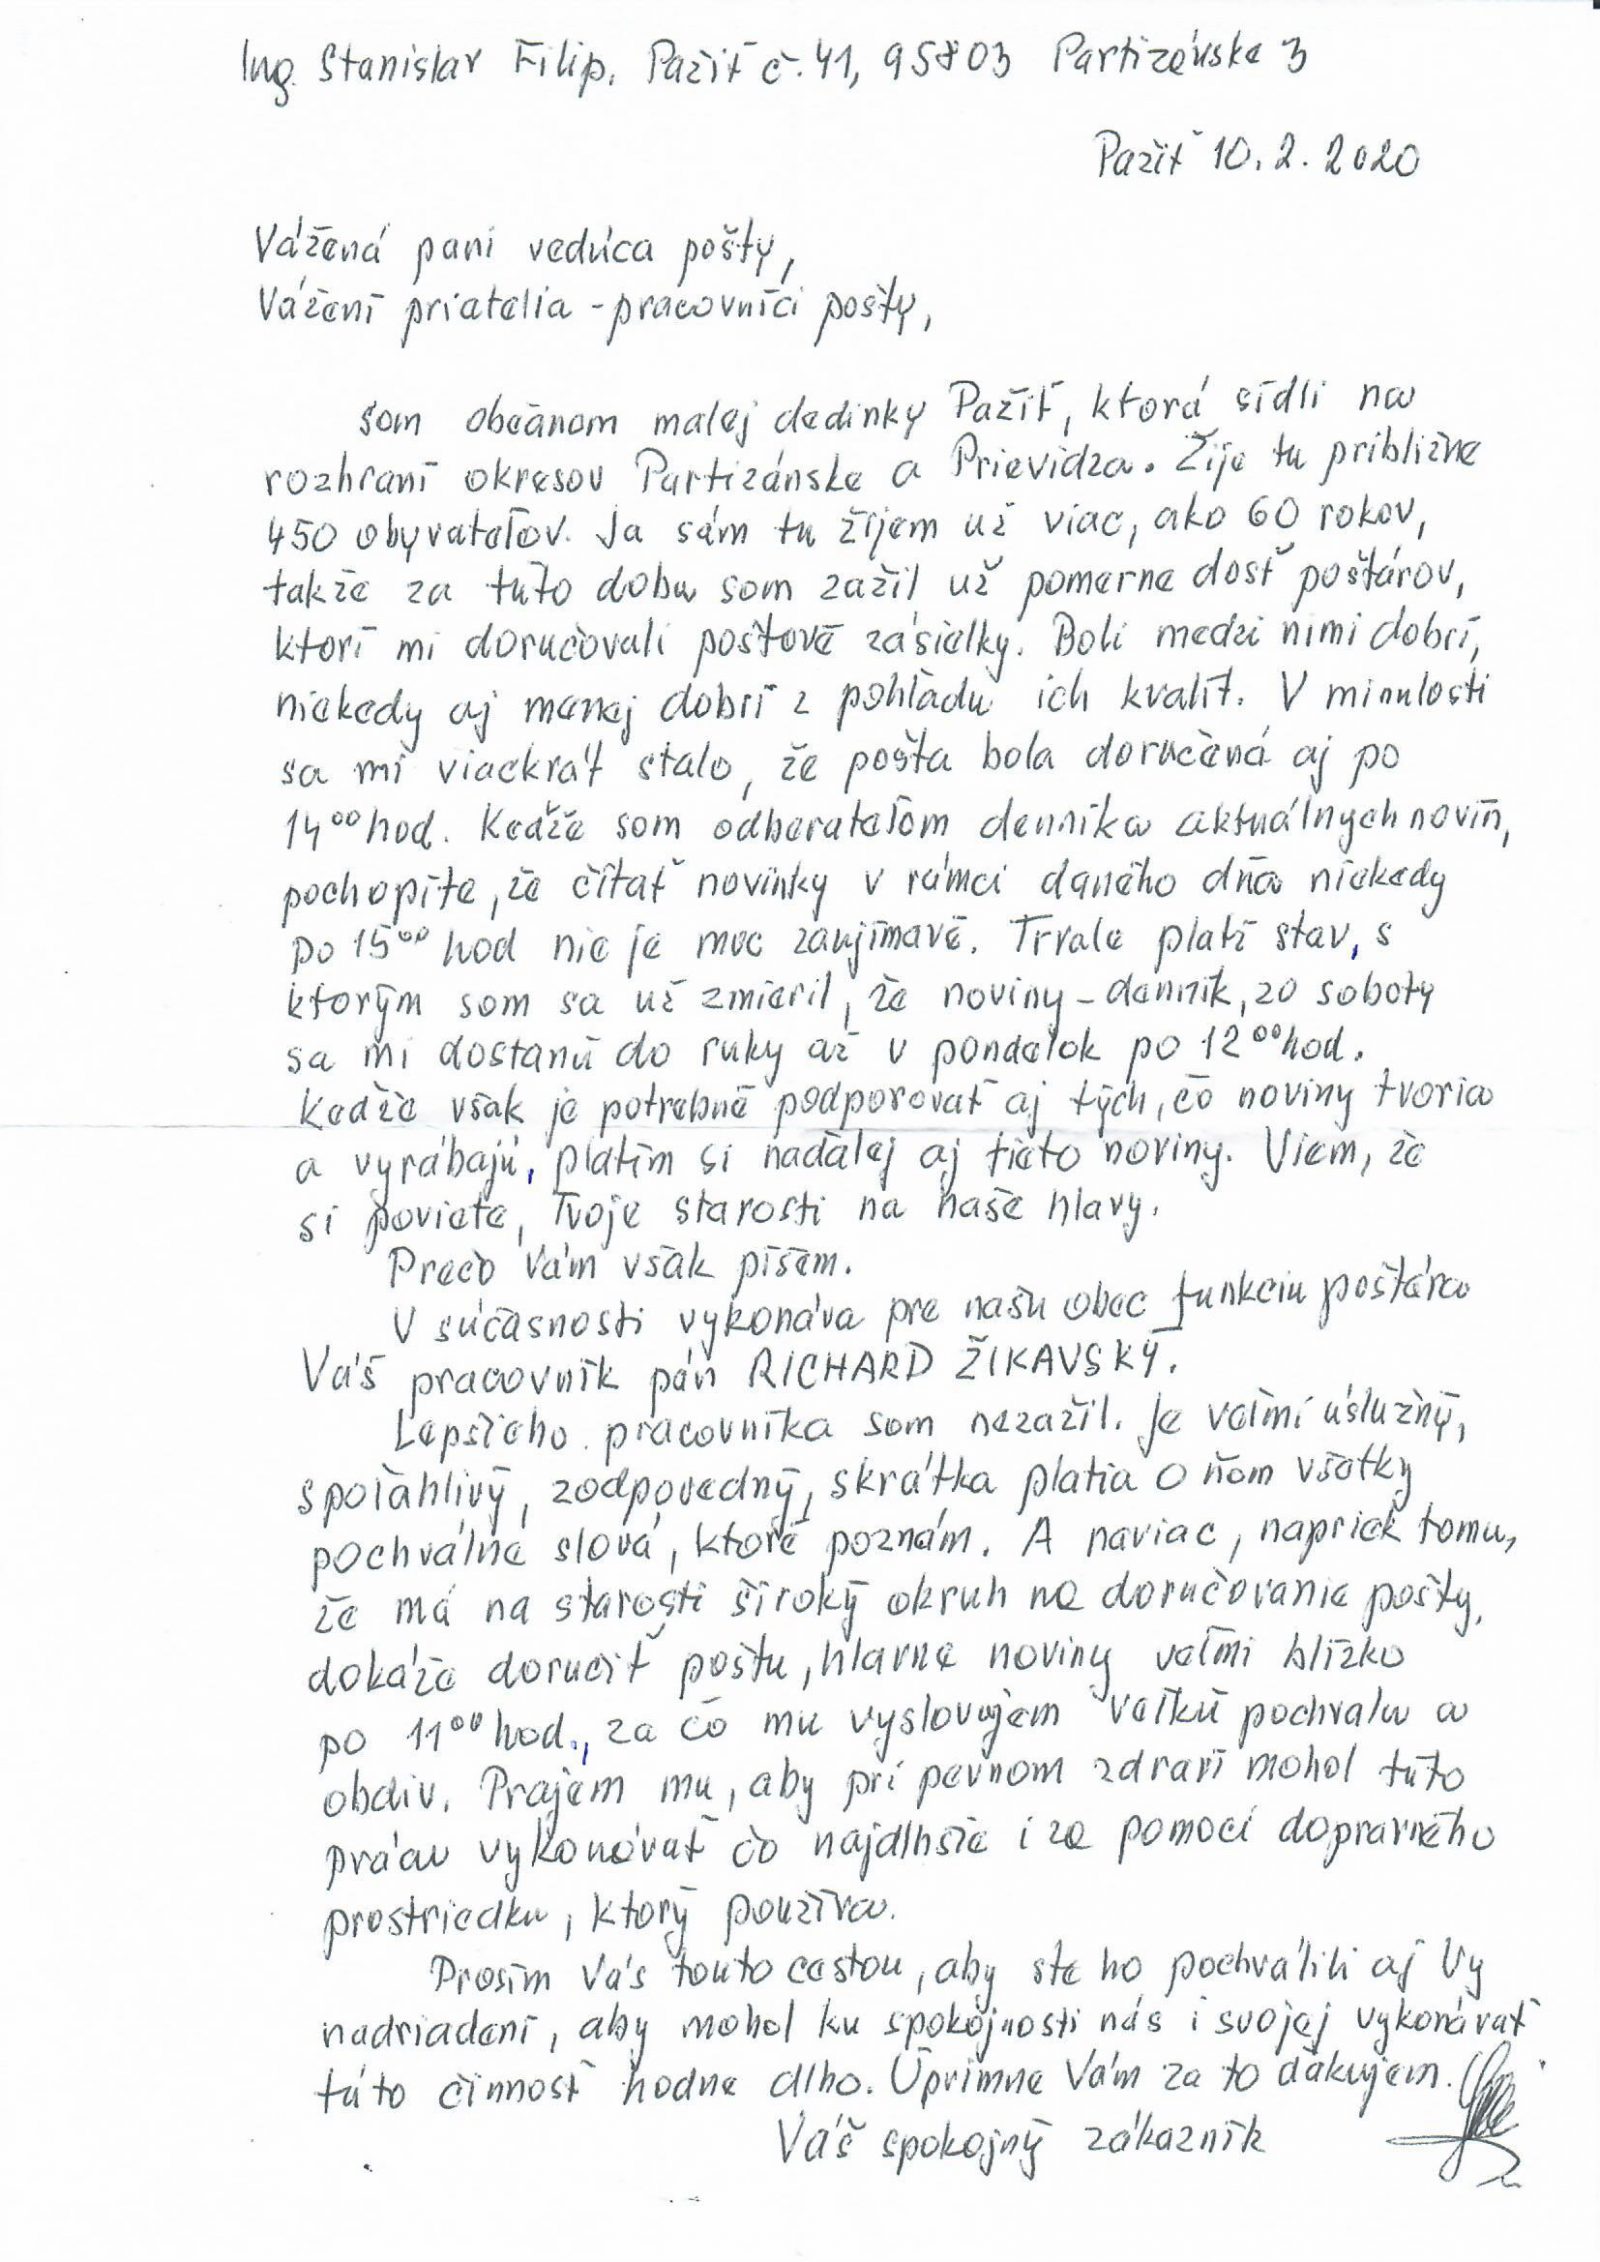 Ing. Stanislav Filip, Pažiť č. 41, 95803 Partizánske 3
Pažiť 10. 2. 2020
Vážená pani vedúca pošty,
Vážení priatelia - pracovníci pošty,
som občanom malej dedinky Pažiť, ktorá sídli na
rozhraní okresov Partizánske a Prievidza. Žije tu približne
450 obyvateľov. Ja sám tu žijem už viac, ako 60 rokov,
takže za túto dobu som zažil už pomerne dosť poštárov,
ktorí mi doručovali poštové zásielky. Boli medzi nimi dobrí,
niekedy aj menej dobrí z pohľadu ich kvalít. V minulosti
sa mi viackrát stalo, že pošta bola doručená aj po
14⁰⁰ hod. Keďže som odberateľom denníka aktuálnych novín,
pochopíte, že čítať novinky v rámci daného dňa niekedy
po 15⁰⁰ hod nie je moc zaujímavé. Trvale platí stav, s
ktorým som sa už zmieril, že noviny - denník, zo soboty
sa mi dostanú do ruky až v pondelok po 12⁰⁰ hod.
Keďže však je potrebné podporovať aj tých, čo noviny tvoria
a vyrábajú, platím si naďalej aj tieto noviny. Viem, že
si poviete, Tvoje starosti na naše hlavy.
Prečo Vám však píšem.
V súčasnosti vykonáva pre našu obec funkciu poštára
Váš pracovník pán RICHARD ŽIKAVSKÝ.
Lepšieho pracovníka som nezažil. Je veľmi úslužný,
spoľahlivý, zodpovedný, skrátka platia o ňom všetky
pochválne slová, ktoré poznám. A naviac, napriek tomu,
že má na starosti široký okruh na doručovanie pošty,
dokáže doručiť poštu, hlavne noviny veľmi blízko
po 11⁰⁰ hod., za čo mu vyslovujem veľkú pochvalu a
obdiv. Prajem mu, aby pri pevnom zdraví mohol túto
prácu vykonávať čo najdlhšie i za pomoci dopravného
prostriedku, ktorý používa.
Prosím Vás touto cestou, aby ste ho pochválili aj Vy
nadriadení, aby mohol ku spokojnosti nás i svojej vykonávať
túto činnosť hodne dlho. Úprimne Vám za to ďakujem.
Váš spokojný zákazník